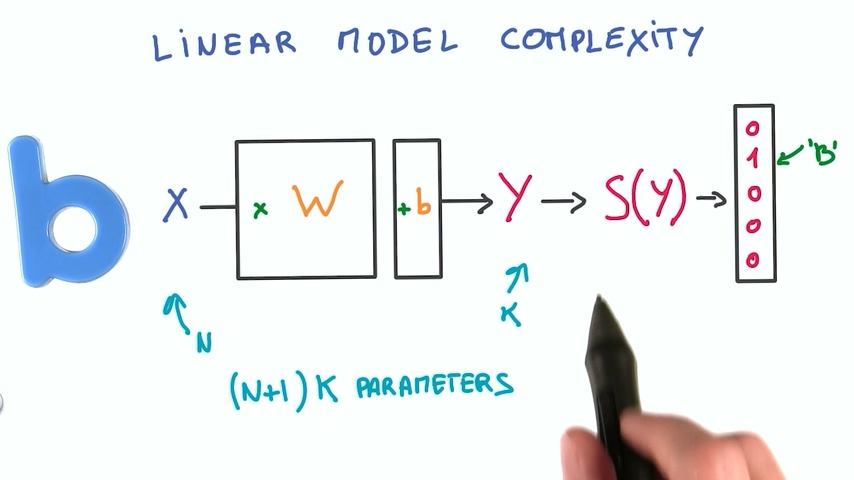 LiNEAR MODEL COMPLEXiTY
b X x W + b Y S(Y) 0 1 0 0 0 'B'
N K
(N+1) K PARAMETERS